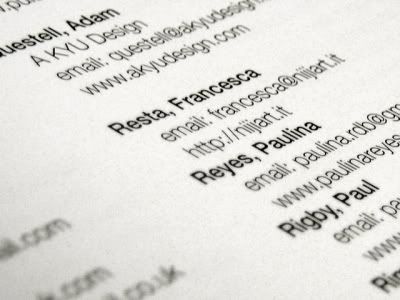 Questell, Adam
A KYU Design
email: questell@akyudesign.com
www.akyudesign.com
Resta, Francesca
email: francesca@nijiart.it
http://nijiart.it
Reyes, Paulina
email: paulina.rdb@gm
www.paulinareyes
Rigby, Paul
email: pa
www.
Rim
ail.com
k.com
co.uk